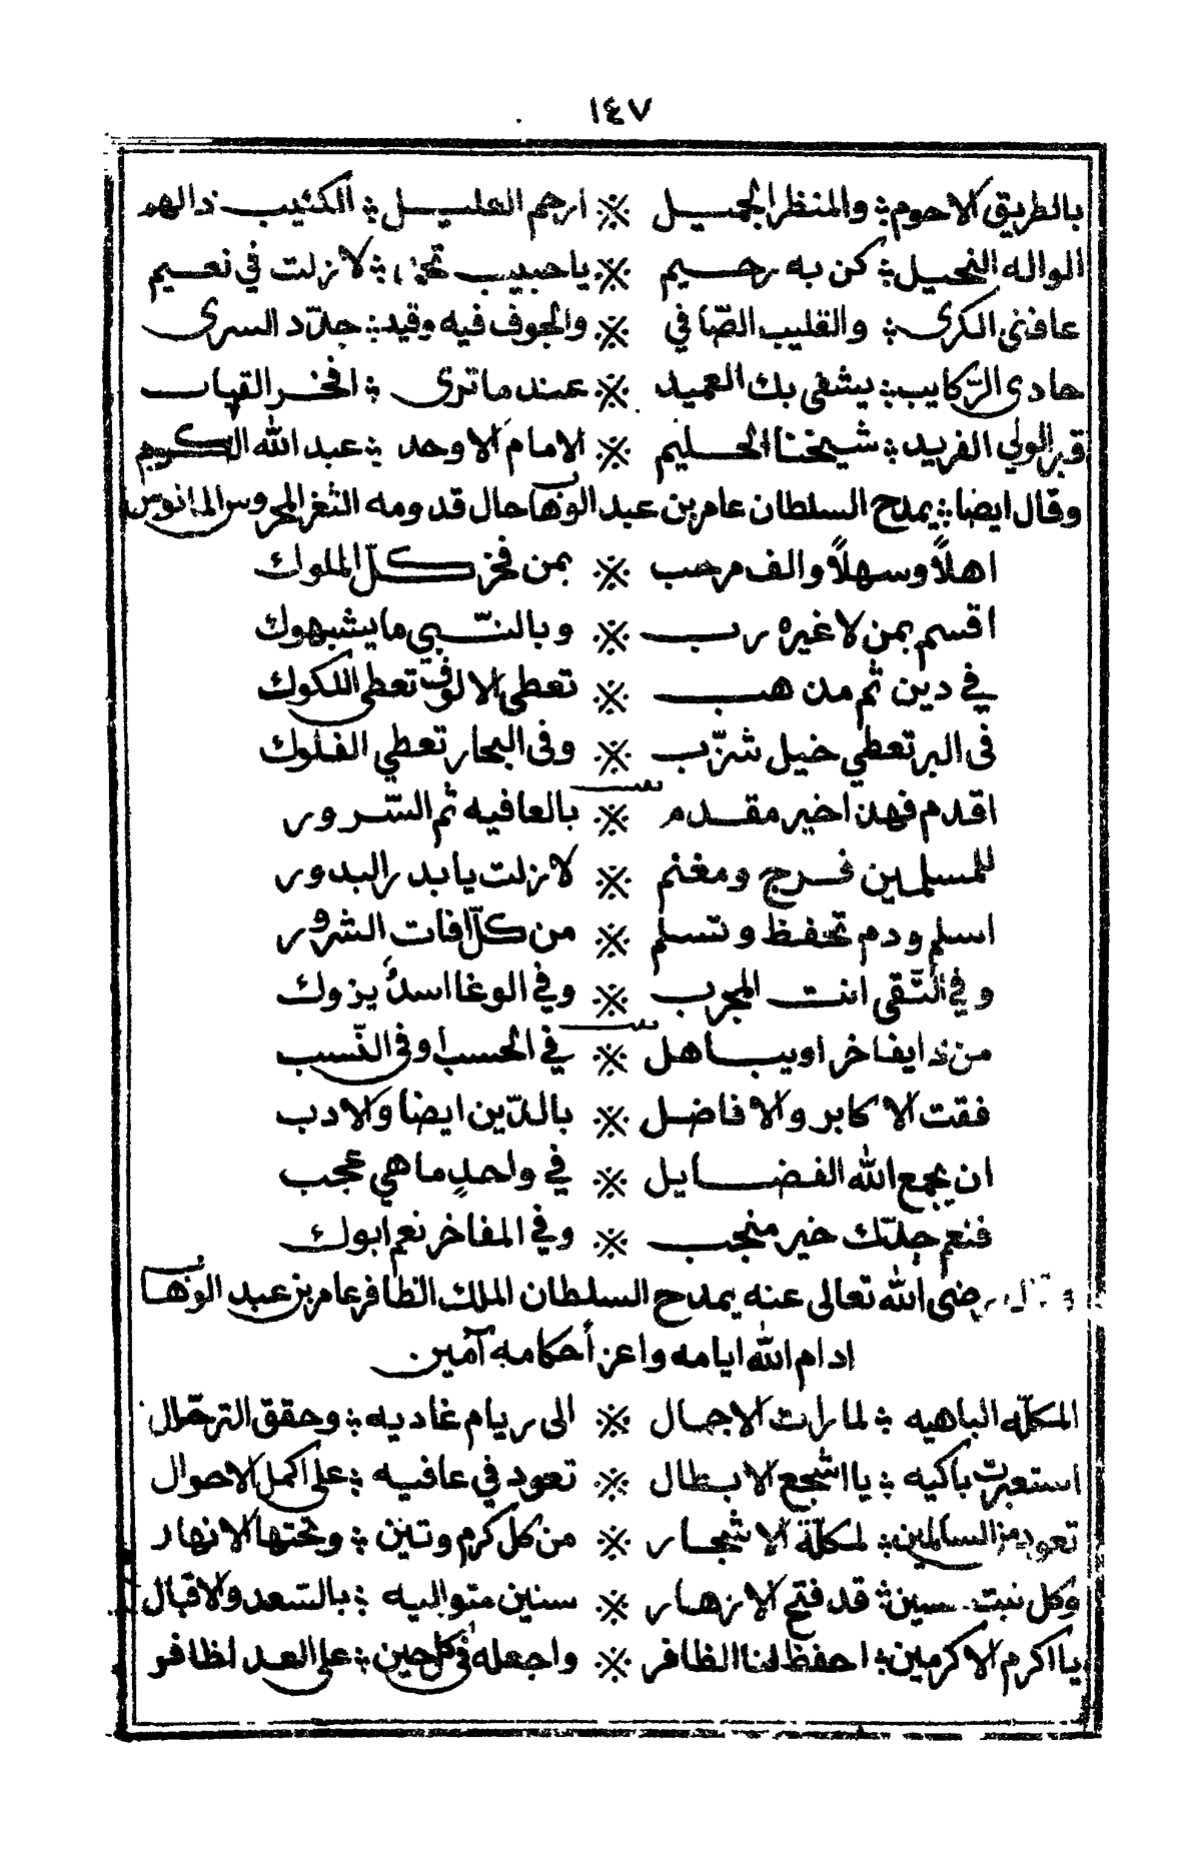 ١٤٧
بالطريق الاحوم ؞ والمنظر الجميل ※ ارحم العليل ؞ الكئيب ذا الهو
الواله النحيل ؞ كن به رحيم ※ يا حبيب ؞ لا زلت في نعيم
عافنى الكرى ؞ والقليب الصّافي ※ والجوف فيه وقيد ؞ جلّاد السرى
حادى الرّكايب ؞ يشفى بك العميد ※ عند ما ترى ؞ افخر القباب
قبر الولي الفريد ؞ شيخنا الحليم ※ الامام الاوحد ؞ عبد الله الكريم
وقال ايضا ؞ يمدح السلطان عامر بن عبد الوهاب حال قدومه الثغر المحروس المانوس
اهلاً وسهلاً والف مرحب ※ بمن فخر كلّ الملوك
اقسم بمن لا غيره رب ※ وبالنّبي ما يشبهوك
في دين ثم مدن هب ※ تعطى الالوف تعطى اللكوك
فى البر تعطي خيل شزّب ※ وفى البحار تعطي الفلوك
اقدم فهدا خير مقدم ※ بالعافيه ثم السّرور
للمسلمين فرج ومغنم ※ لا زلت يا بدر البدور
اسلم ودم تحفظ وتسلم ※ من كلّ افات الشرور
وفي التّقى انت المجرب ※ وفي الوغا اسدٌ يزوك
من ذا يفاخر او يباهل ※ في الحسب او فى النّسب
فقت الاكابر والافاضل ※ بالدّين ايضا والادب
ان يجمع الله الفضايل ※ في واحدٍ ما هي عجب
فنعم جدّك خير منجب ※ وفي المفاخر نعم ابوك
وقال رضى الله تعالى عنه يمدح السلطان الملك الظافر عامر بن عبد الوهاب
ادام الله ايامه واعز أحكامه آمين
المكلّه الباهيه ؞ لما رات الاجمال ※ الى ريام غاديه ؞ وحقق الترحّال
استعبرت باكيه ؞ يا اشجع الابطال ※ تعود في عافيه ؞ على اكمل الاحوال
تعود من السالمين ؞ لمكلّة الاشجار ※ من كل كرم وتين ؞ وتحتها الانهار
وكل نبت حسين ؞ قد فتح الازهار ※ سنين متواليه ؞ بالسّعد والاقبال
يا اكرم الاكرمين ؞ احفظ لنا الظافر ※ واجعله فى كل حين ؞ على العدا ظافر